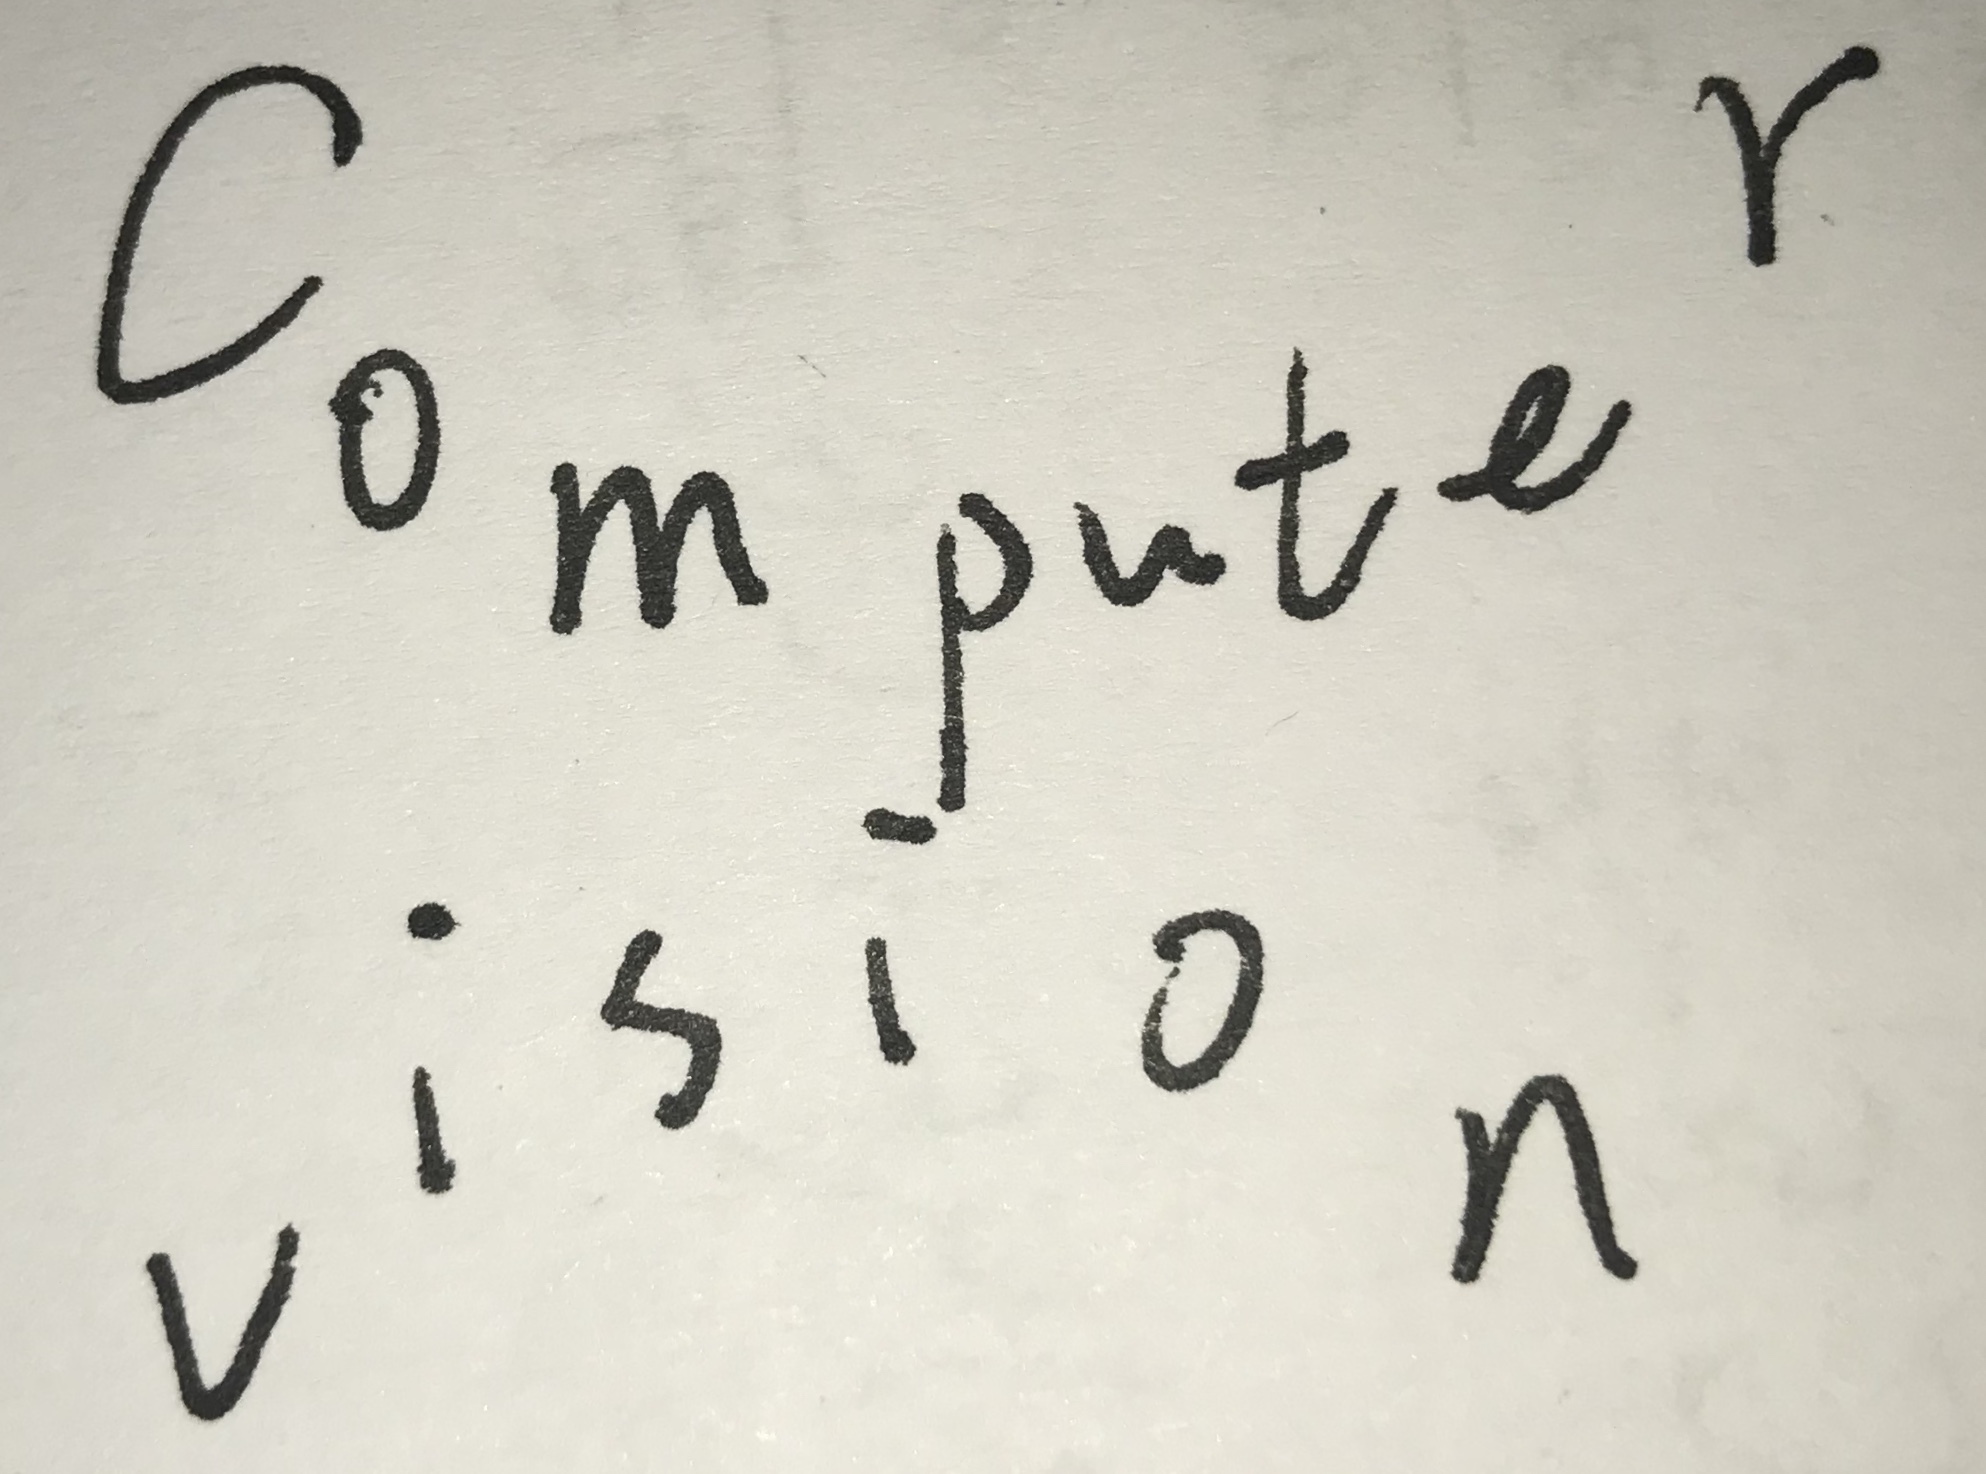 Computer
vision